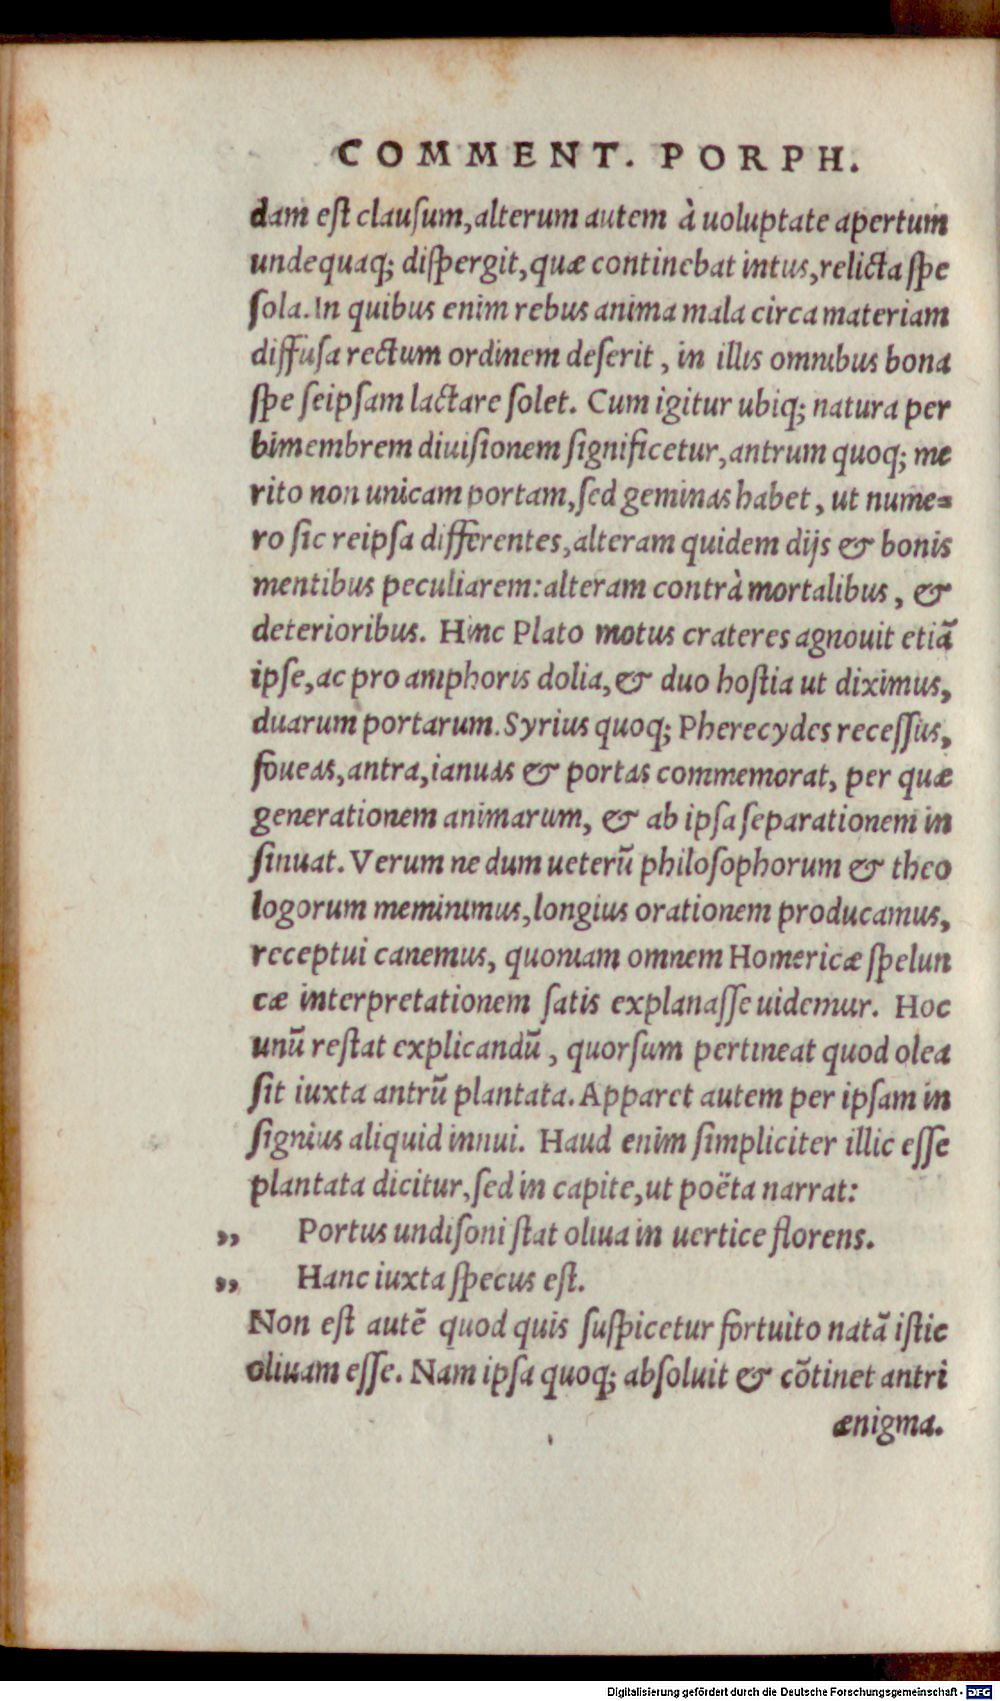 COMMENT. PORPH.
dam est clausum, alterum autem à uoluptate apertum
undequaq; dispergit, quæ continebat intus, relicta spe
sola. In quibus enim rebus anima mala circa materiam
diffusa rectum ordinem deserit, in illis omnibus bona
spe seipsam lactare solet. Cum igitur ubiq; natura per
bimembrem diuisionem significetur, antrum quoq; me
rito non unicam portam, sed geminas habet, ut nume=
ro sic reipsa differentes, alteram quidem dijs & bonis
mentibus peculiarem: alteram contrà mortalibus, &
deterioribus. Hinc Plato motus crateres agnouit etiã
ipse, ac pro amphoris dolia, & duo hostia ut diximus,
duarum portarum. Syrius quoq; Pherecydes recessus,
foueas, antra, ianuas & portas commemorat, per quæ
generationem animarum, & ab ipsa separationem in
sinuat. Verum ne dum ueterũ philosophorum & theo
logorum meminimus, longius orationem producamus,
receptui canemus, quoniam omnem Homericæ spelun
cæ interpretationem satis explanasse uidemur. Hoc
unũ restat explicandũ, quorsum pertineat quod olea
sit iuxta antrũ plantata. Apparet autem per ipsam in
signius aliquid innui. Haud enim simpliciter illic esse
plantata dicitur, sed in capite, ut poëta narrat:
„ Portus undisoni stat oliua in uertice florens.
„ Hanc iuxta specus est.
Non est autẽ quod quis suspicetur fortuito natã istic
oliuam esse. Nam ipsa quoq; absoluit & cõtinet antri
ænigma.
Digitalisierung gefördert durch die Deutsche Forschungsgemeinschaft - DFG